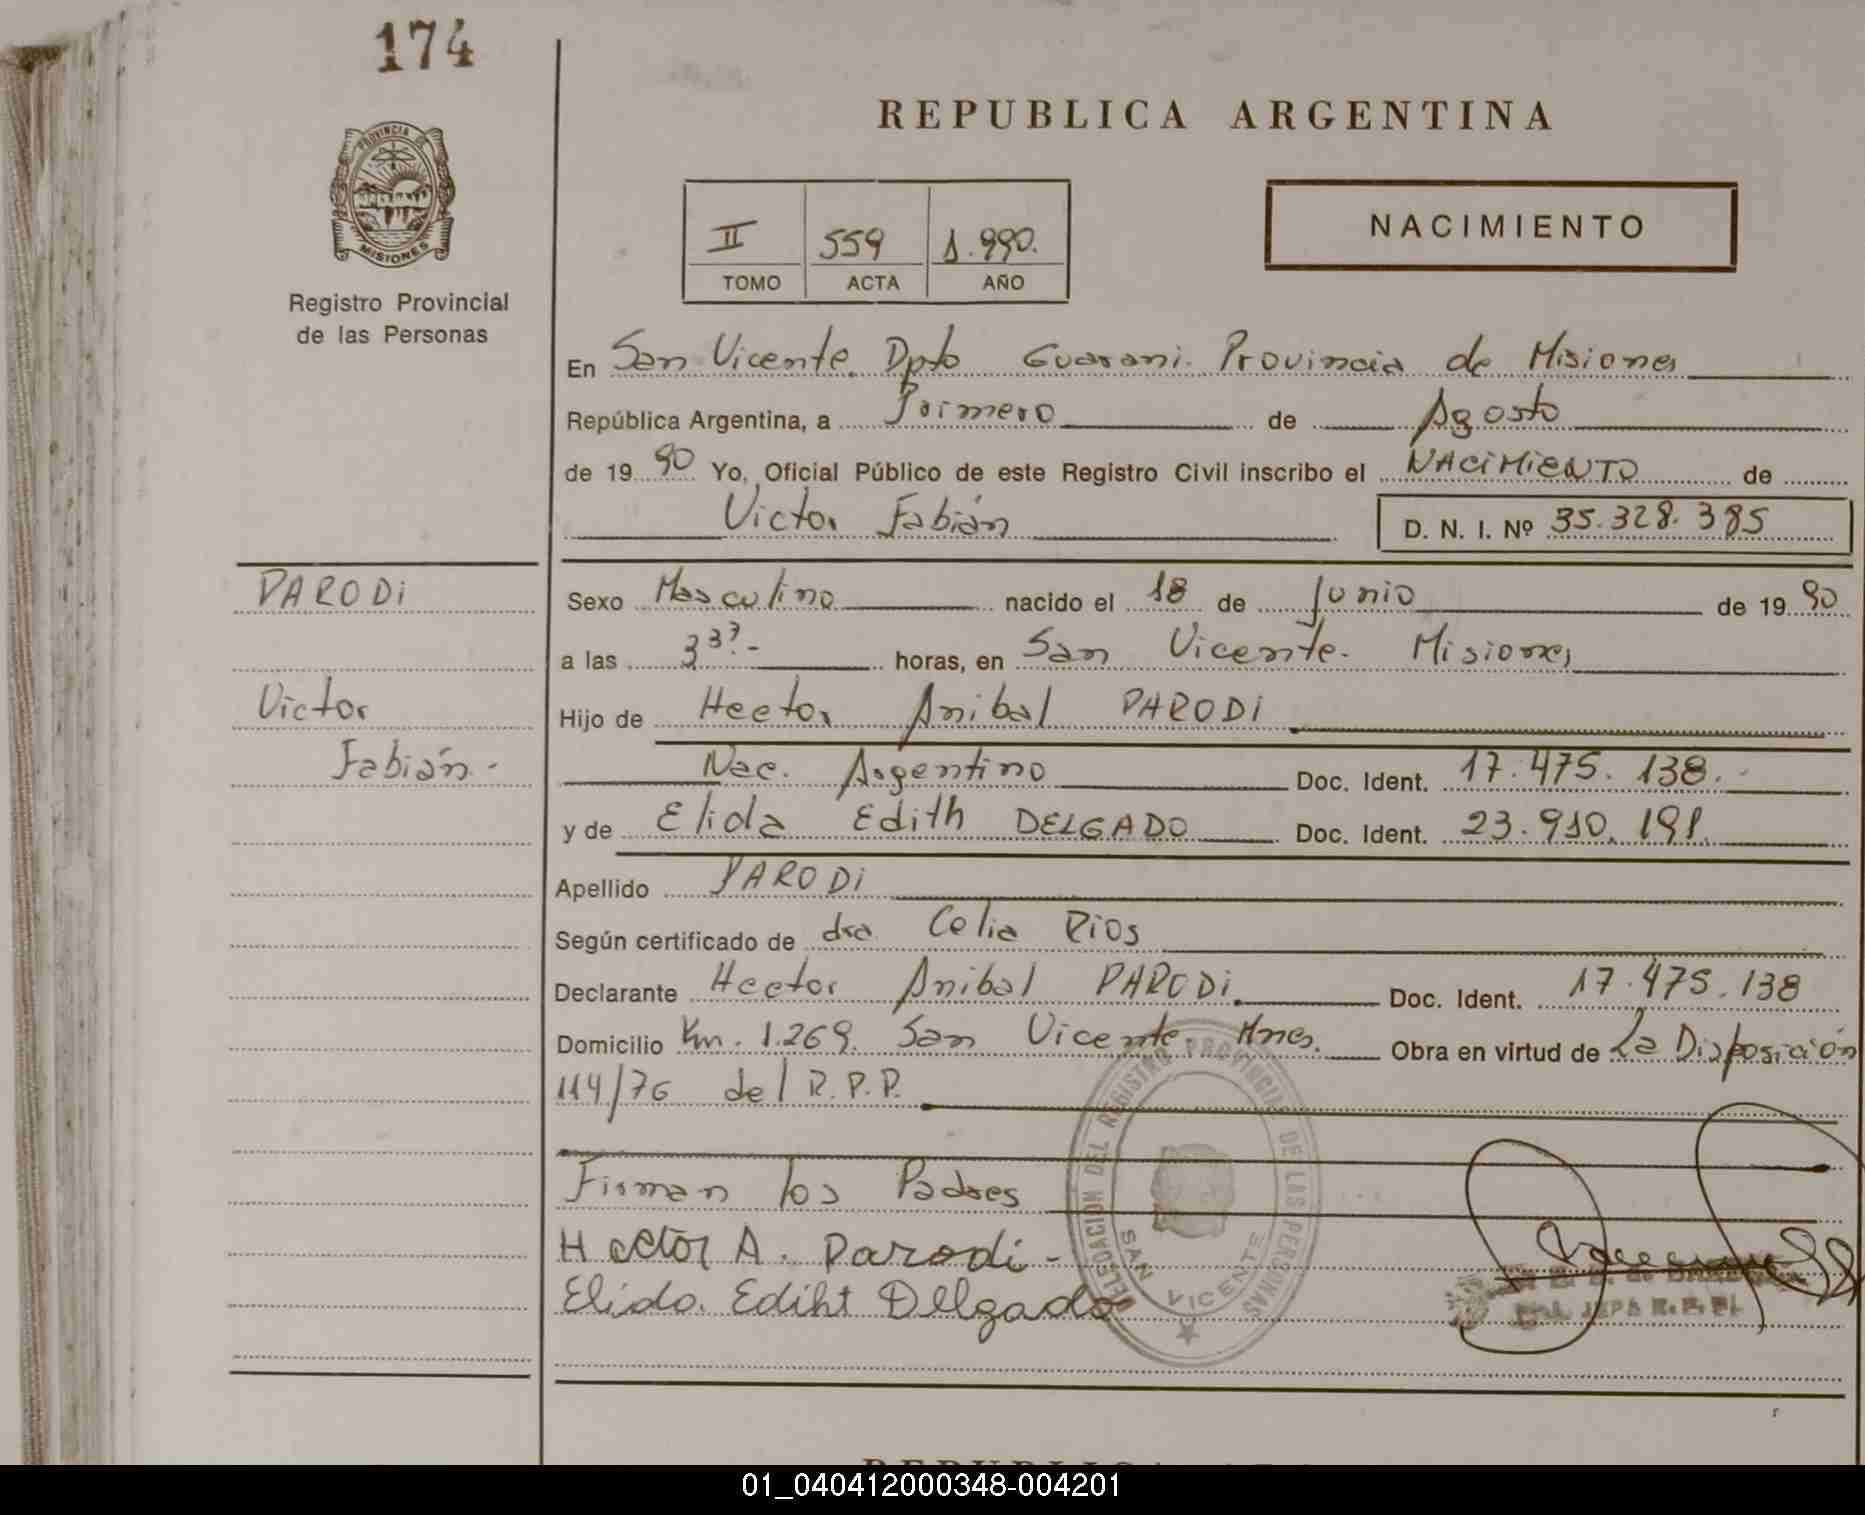 174
REPUBLICA ARGENTINA
PROVINCIA DE
MISIONES
Registro Provincial
de las Personas
II 559 1.990.
TOMO ACTA AÑO
NACIMIENTO
En San Vicente. Dpto Guarani. Provincia de Misiones
República Argentina, a Primero de Agosto
de 19 90 Yo, Oficial Público de este Registro Civil inscribo el NACIMIENTO de
Victor Fabián D. N. I. Nº 35.328.385
PARODI
Sexo Masculino nacido el 18 de Junio de 19 90
a las horas, en San Vicente. Misiones
Victor
Hijo de Hector Anibal PARODI
Fabián.-
Nac. Argentino Doc. Ident. 17.475.138.-
y de Elida Edith DELGADO Doc. Ident. 23.910.191.
Apellido PARODI
Según certificado de dra Celia Rios
Declarante Hector Anibal PARODI. Doc. Ident. 17.475.138
Domicilio Km. 1.269. San Vicente Mnes. Obra en virtud de La Disposición
114/76 del R.P.P.
Firman los Padres
Hector A. Parodi-
Elida. Ediht Dellgado
DELEGACION DEL REGISTRO PROVINCIAL DE LAS PERSONAS
SAN VICENTE
REPUBLICA
01_040412000348-004201